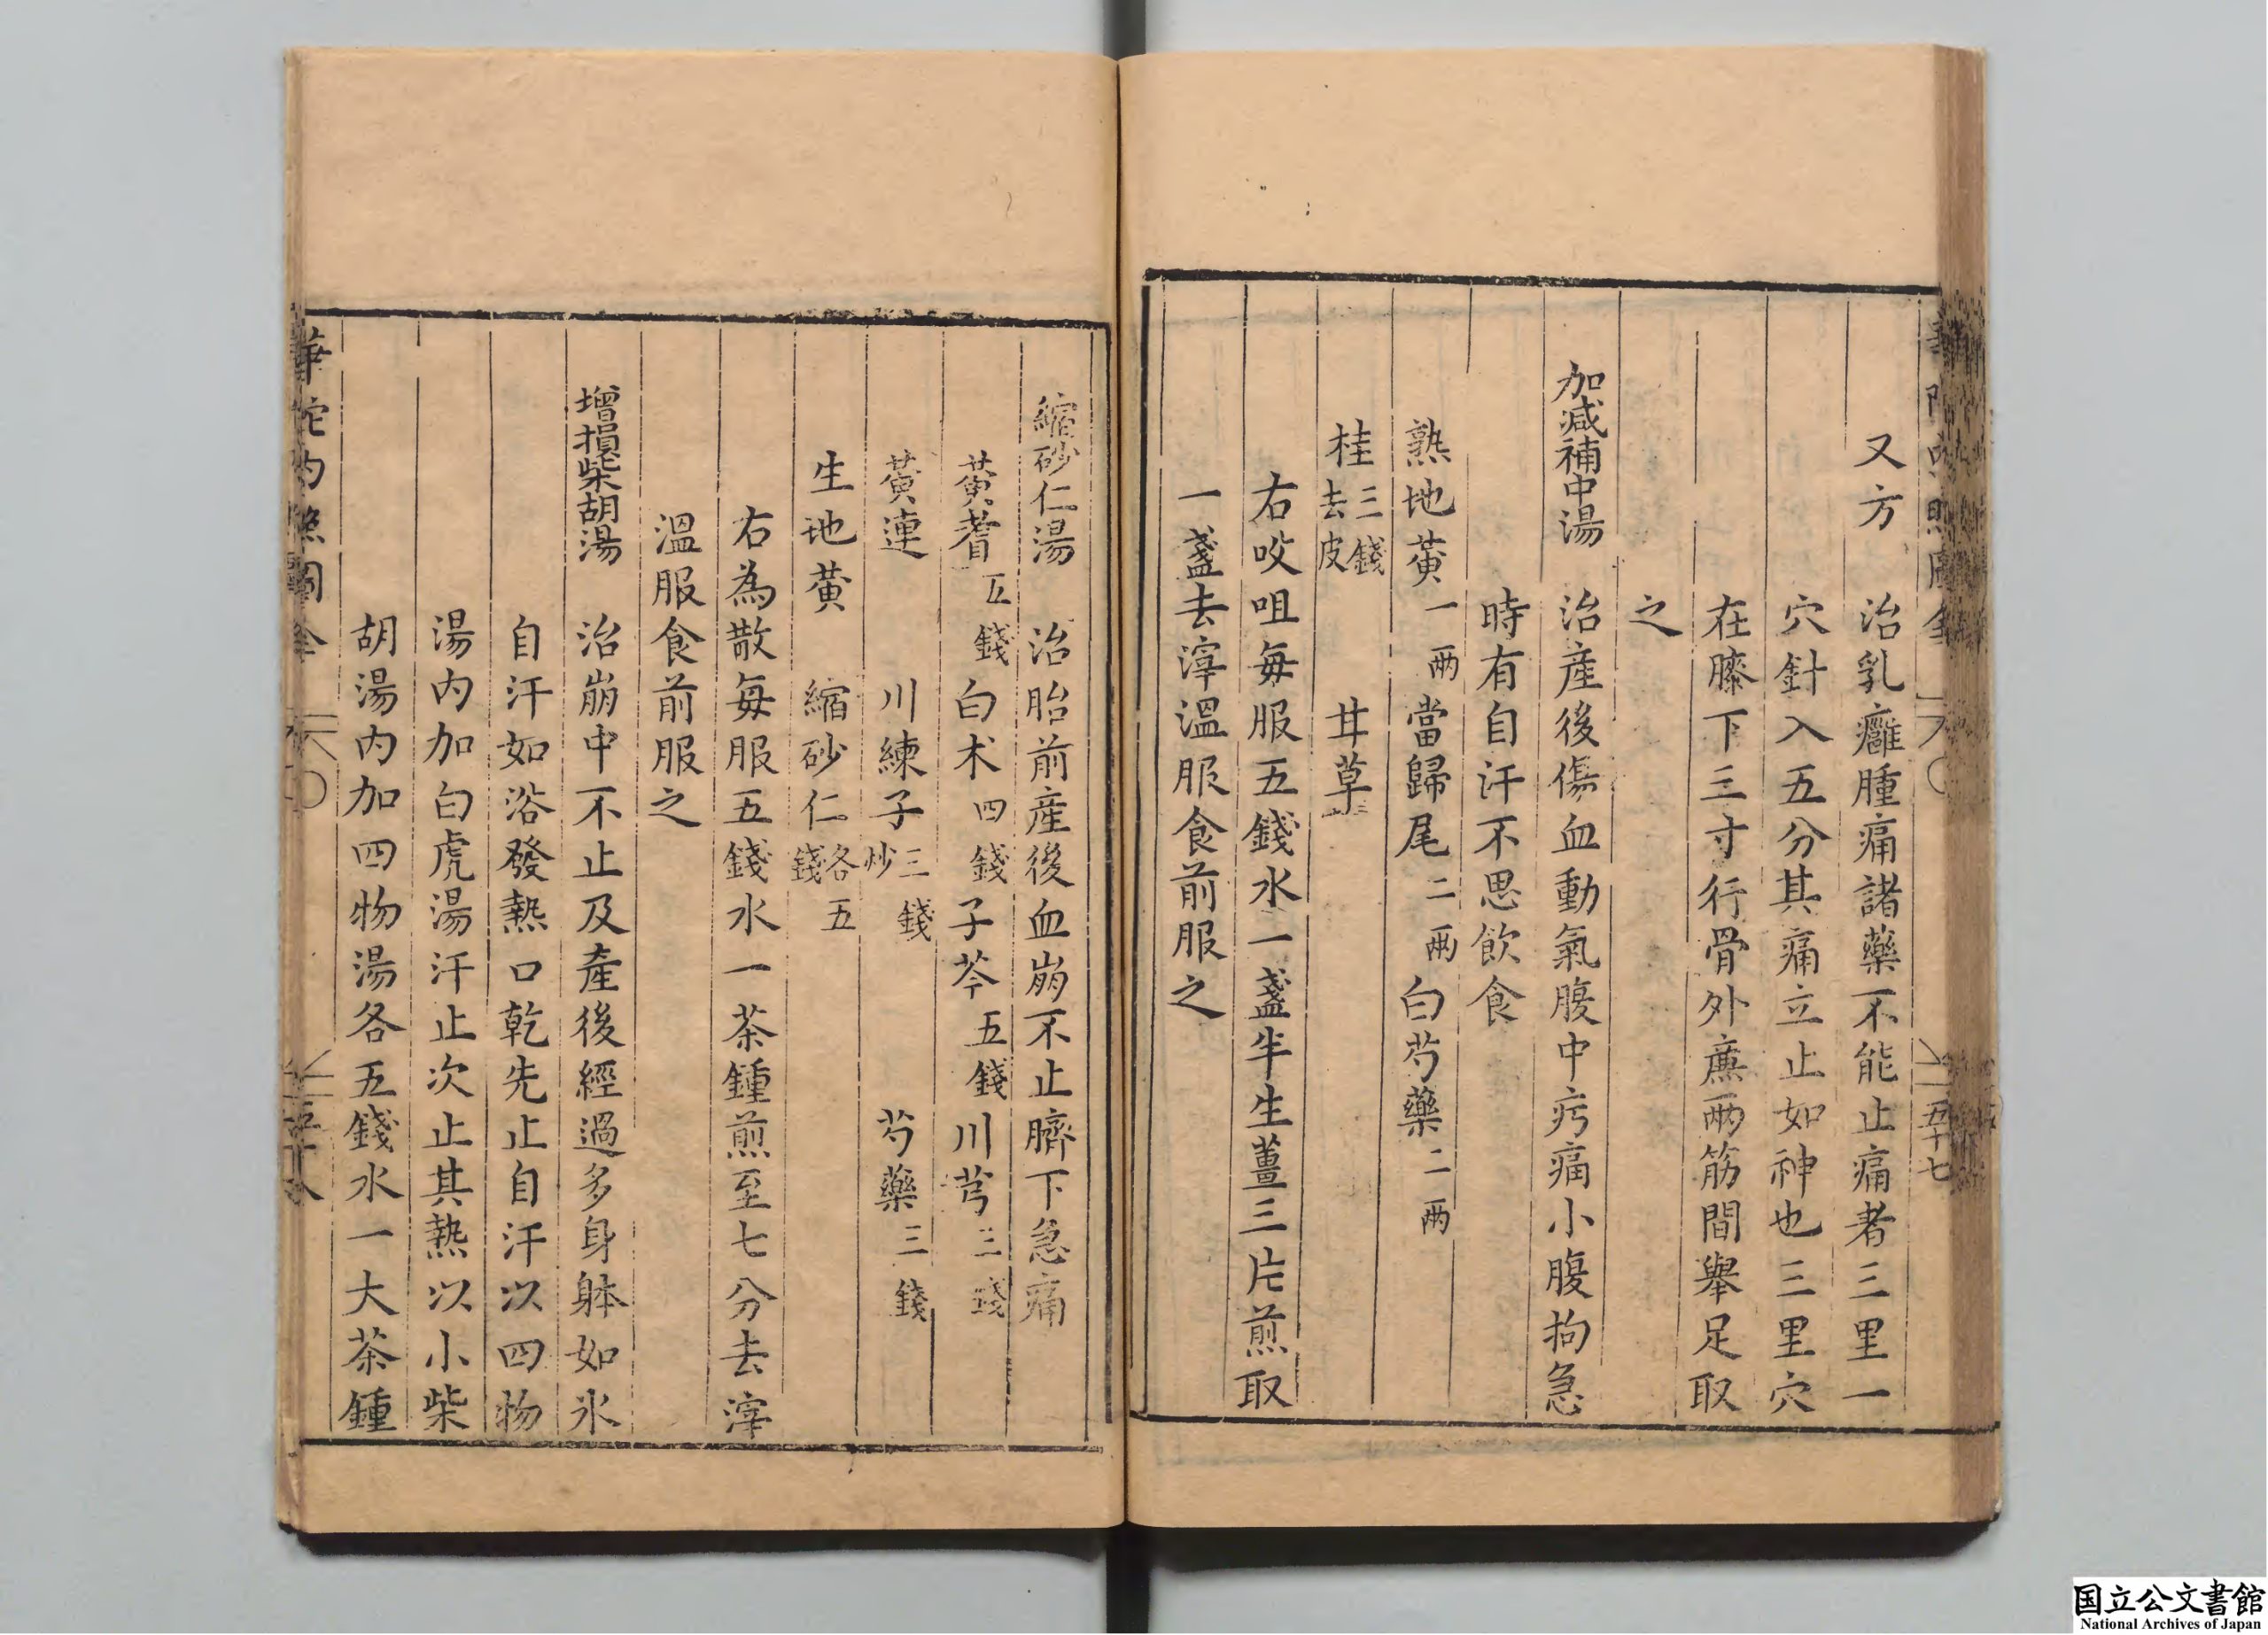 又方　治乳癰腫痛諸藥不能止痛者三里一
穴針入五分其痛立止如神也三里穴
在膝下三寸行骨外廉兩筋間舉足取
之
加減補中湯　治産後傷血動氣腹中㽲痛小腹拘急
時有自汗不思飲食
熟地黄一兩當歸尾二兩白芍藥二兩
桂三錢去皮　甘草
右咬咀每服五錢水一盞半生薑三片煎取
一盞去滓溫服食前服之
五十七
縮砂仁湯　治胎前産後血崩不止臍下急痛
黄耆五錢白术四錢子芩五錢川芎三錢
黄連　川練子三錢炒　芍藥三錢
生地黄　縮砂仁各五錢
右為散每服五錢水一茶鍾煎至七分去滓
溫服食前服之
增損柴胡湯　治崩中不止及產後經過多身躰如氷
自汗如浴發熱口乾先止自汗以四物
湯內加白虎湯汗止次止其熱以小柴
胡湯內加四物湯各五錢水一大茶鍾
華佗內照圖全
国立公文書館
National Archives of Japan